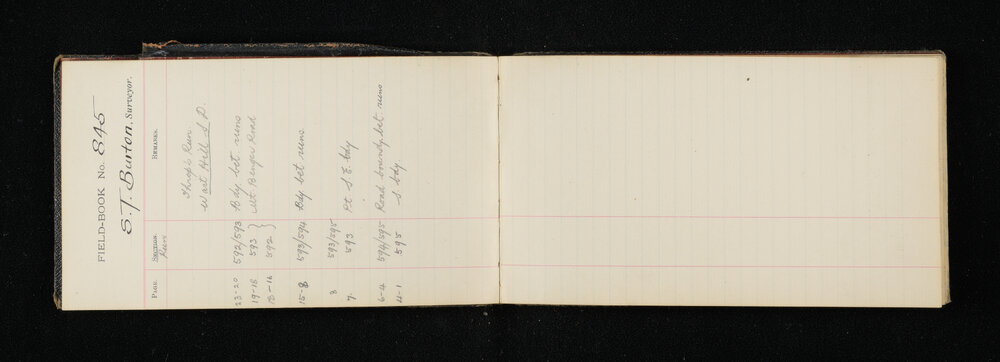 FIELD-BOOK No. 845
S. T. Burton, Surveyor.
PAGE. SECTION. REMARKS.
Runs
Run
Wart Hill S D.
23-20 592/593 Bdy bet runs
19-18 593 } Mt Benger Road
18-16 592 }
15-8 593/594 Bdy bet runs
8 593/595
7. 593 Pt S E bdy
6-4 594/595 Road boundy bet runs
4-1 595 S. bdy